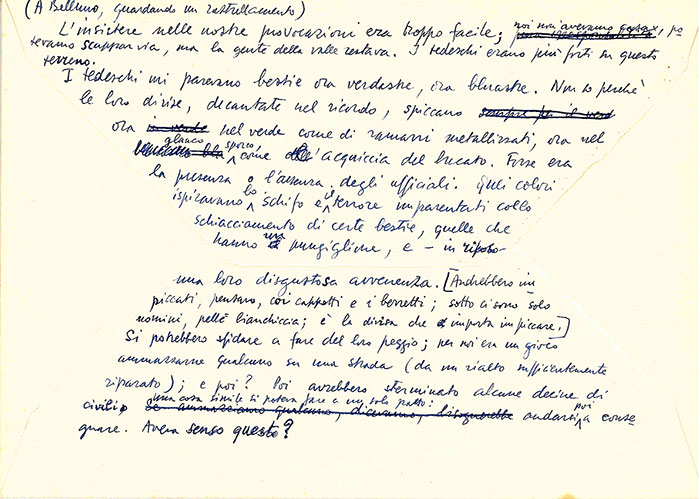 (A Belluno, guardando un rastrellamento)
L'insistere nelle nostre provocazioni era troppo facile; noi non avevamo , po
tevamo scappar via, ma la gente della valle restava. I tedeschi erano più forti su questo
terreno.
I tedeschi mi paravano bestie ora verdastre, ora bluastre. Non so perché
le loro divise, decantate nel ricordo, spiccano sempre per il verd
ora in verde nel verde come di ramarri metallizzati, ora nel
glauco sporco come dell'acquiccia del bucato. Forse era
la presenza o l'assenza degli ufficiali. Quei colori
ispiravano lo schifo e il terrore imparentati collo
schiacciamento di certe bestie, quelle che
hanno un pungiglione, e – in riposo
una loro disgustosa avvenenza. [Andrebbero im
piccati, pensavo, coi cappotti e i berretti; sotto ci sono solo
uomini, pelle bianchiccia; è la divisa che importa impiccare.]
Si potrebbero sfidare a fare del loro peggio; per noi era un gioco
ammazzarne qualcuno su una strada (da un rialto sufficientemente
riparato); e poi? Poi avrebbero sterminato alcune decine di
civili una cosa simile si poteva fare a un solo patto:
se ammazziamo qualcuno, dicevamo, bisognerebbe andarsi poi a conse
gnare. Aveva senso questo?